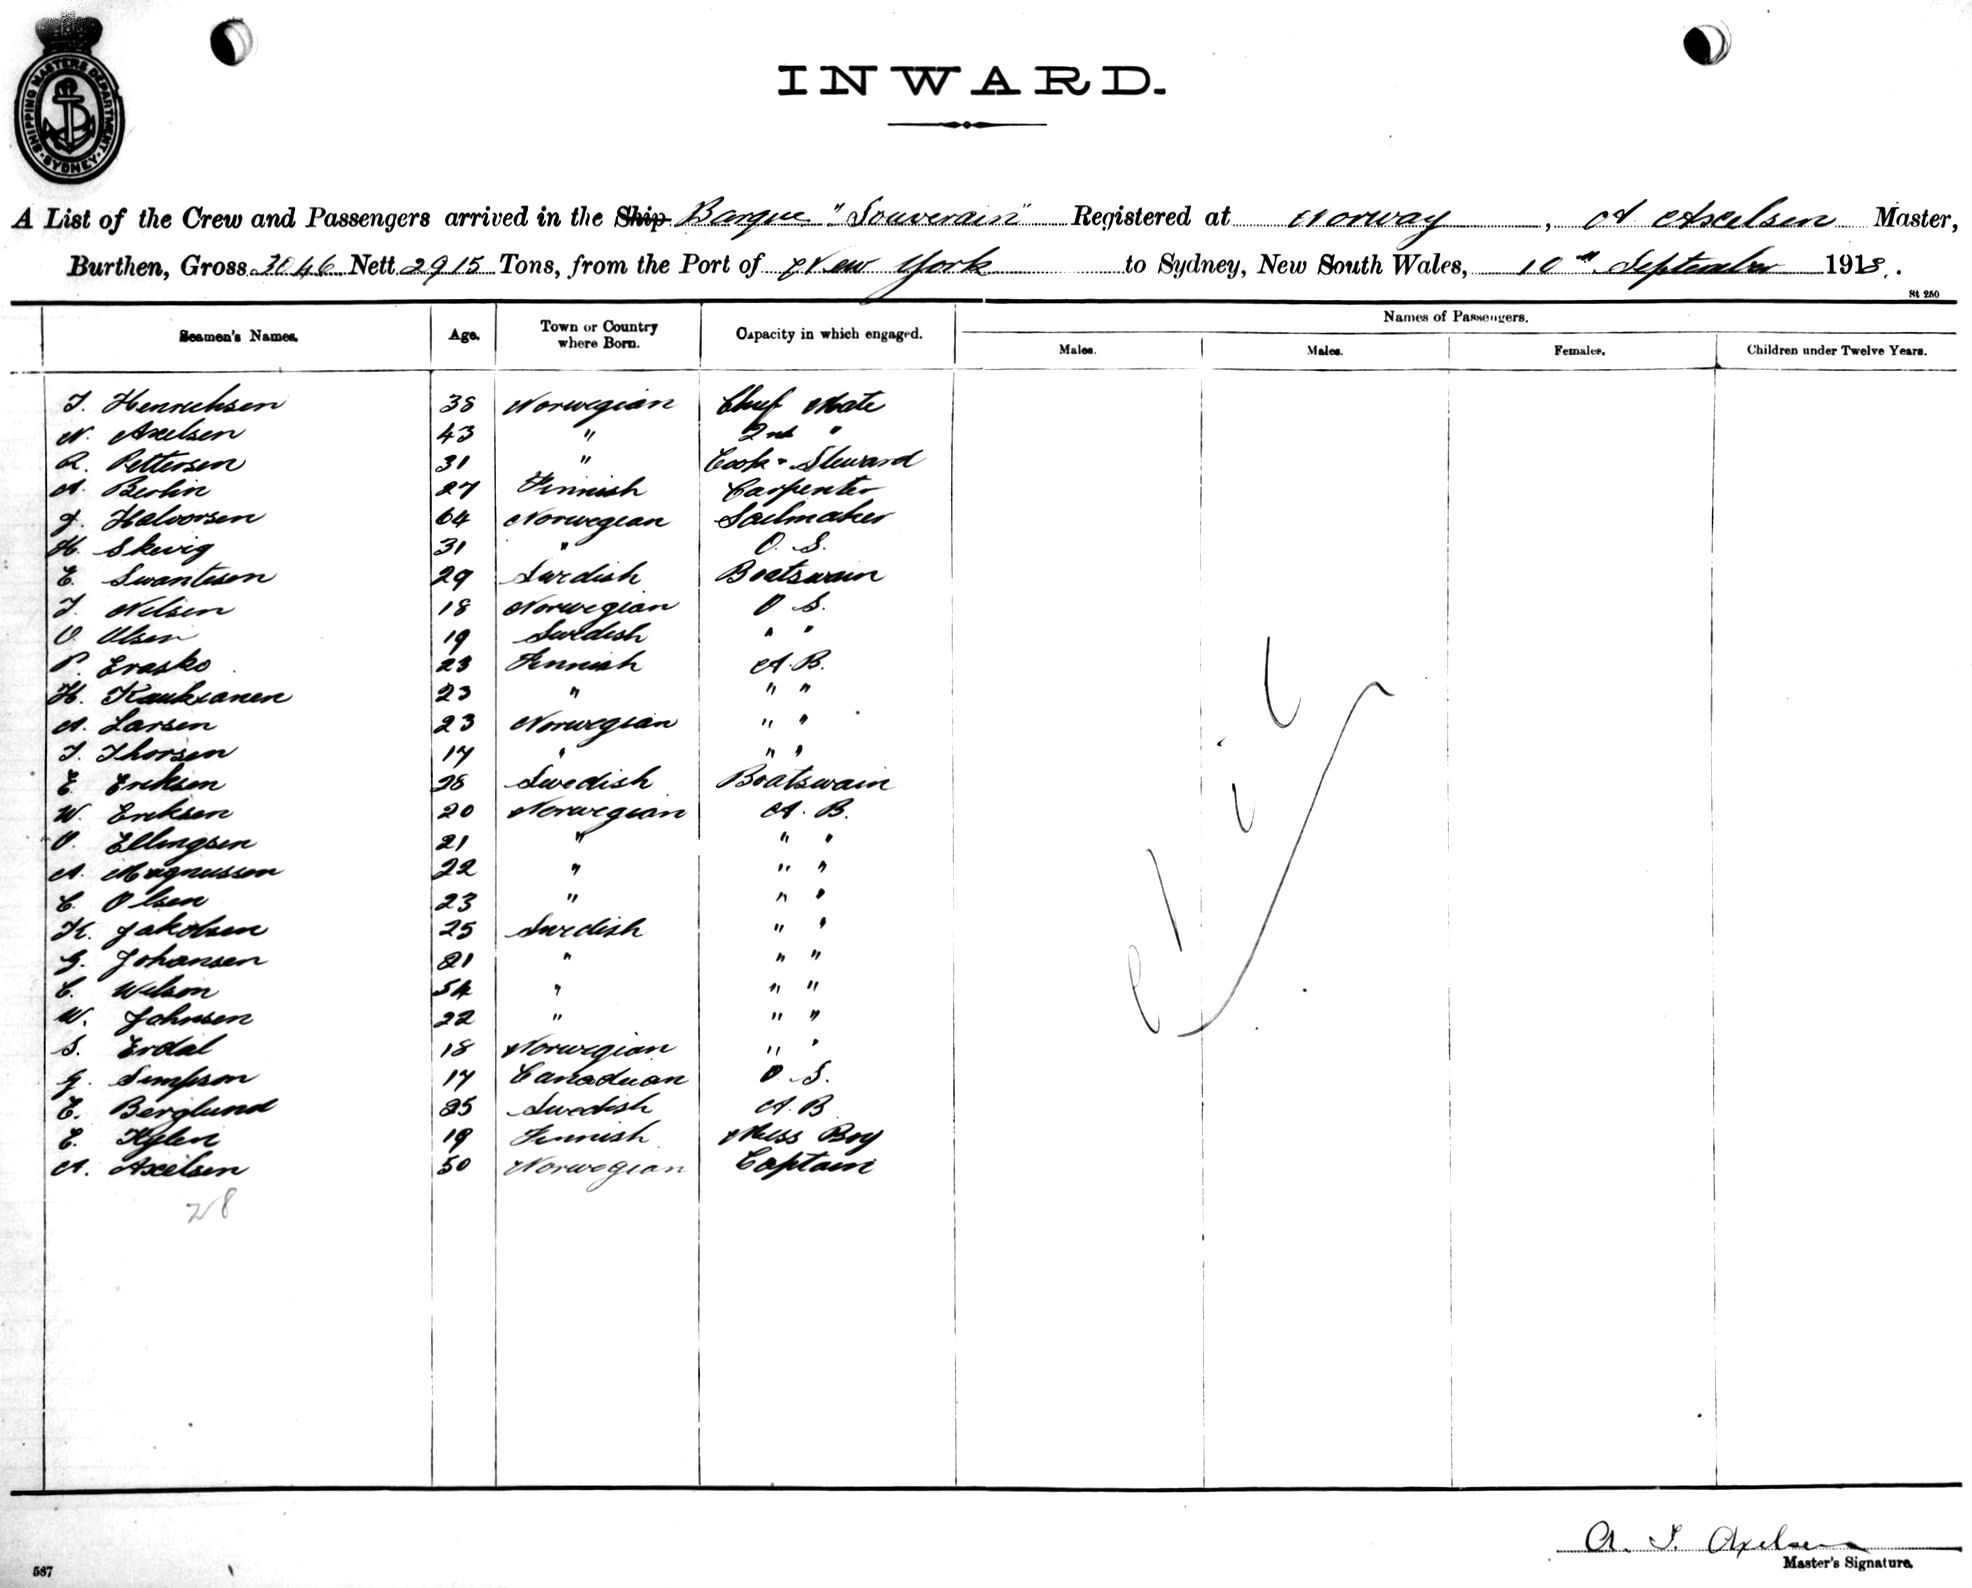 SHIPPING MASTERS DEPARTMENT
SYDNEY
INWARD.
A List of the Crew and Passengers arrived in the Ship Barque "Souverain" Registered at Norway, A Axelsen Master,
Burthen, Gross 3046 Nett 2915 Tons, from the Port of New York to Sydney, New South Wales, 10" September 1918.
St 250
Seamen's Names. Age. Town or Country where Born. Capacity in which engaged. Names of Passengers.
Males. Males. Females. Children under Twelve Years.
J. Henrichsen 38 Norwegian Chief Mate
N. Axelsen 43 " 2nd "
R. Pettersen 31 " Cook & Steward
A. Berlin 27 Finnish Carpenter
J. Halvorsen 64 Norwegian Sailmaker
H. Skevig 31 " O. S.
E. Swantesen 29 Swedish Boatswain
T. Nilsen 18 Norwegian O. S.
O. Olsen 19 Swedish " "
P. Erasko 23 Finnish A. B.
H. Kauksanen 23 " " "
A. Larsen 23 Norwegian " "
T. Thorsen 17 " " "
E. Eriksen 28 Swedish Boatswain
W. Eriksen 20 Norwegian A. B.
O. Ellingsen 21 " " "
A. Magnussen 22 " " "
C. Olsen 23 " " "
K. Jakobsen 25 Swedish " "
G. Johansen 21 " " "
C. Wilson 54 " " "
W. Johnsen 22 " " "
S. Erdal 18 Norwegian " "
G. Simpson 17 Canaduan O. S.
E. Berglund 25 Swedish A. B
E. Kylen 19 Finnish Mess Boy
A. Axelsen 50 Norwegian Captain
28
Nil
A. T. Axelsen
Master's Signature.
587